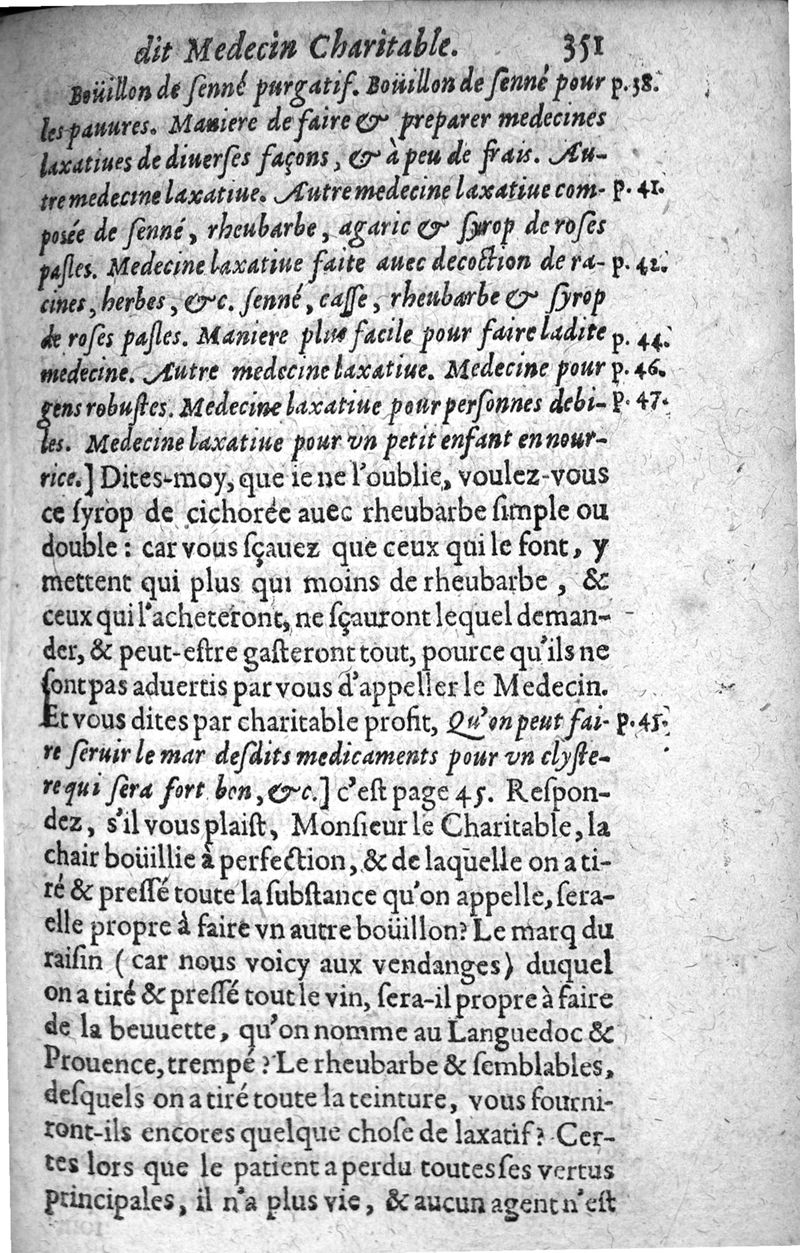 dit Medecin Charitable. 351
Boüillon de ſenné purgatif. Boüillon de ſenné pour p.38.
les pauures. Maniere de faire & preparer medecines
laxatiues de diuerſes façons, & à peu de frais. Au-
tre medecine laxatiue. Autre medecine laxatiue com- p.41.
poſée de ſenné, rheubarbe, agaric & ſyrop de roſes
paſles. Medecine laxatiue faite auec decoction de ra- p.42.
cines, herbes, &c. ſenné, caſſe, rheubarbe & ſyrop
de roſes paſles. Maniere plus facile pour faire ladite p.44.
medecine. Autre medecine laxatiue. Medecine pour p.46.
gens robuſtes. Medecine laxatiue pour perſonnes debi- p.47.
les. Medecine laxatiue pour vn petit enfant en nour-
rice.] Dites-moy, que ie ne l'oublie, voulez-vous
ce ſyrop de cichorée auec rheubarbe ſimple ou
double : car vous ſçauez que ceux qui le font, y
mettent qui plus qui moins de rheubarbe, &
ceux qui l'acheteront, ne ſçauront lequel deman-
der, & peut-eſtre gaſteront tout, pource qu'ils ne
ſont pas aduertis par vous d'appeller le Medecin.
Et vous dites par charitable profit, Qu'on peut fai- p.45.
re ſeruir le mar deſdits medicaments pour vn clyſte-
re qui ſera fort bon, &c.] c'eſt page 45. Reſpon-
dez, s'il vous plaiſt, Monſieur le Charitable, la
chair boüillie à perfection, & de laquelle on a ti-
ré & preſſé toute la ſubſtance qu'on appelle, ſera-
elle propre à faire vn autre boüillon? Le marq du
raiſin (car nous voicy aux vendanges) duquel
on a tiré & preſſé tout le vin, ſera-il propre à faire
de la beuuette, qu'on nomme au Languedoc &
Prouence, trempé ? Le rheubarbe & ſemblables,
deſquels on a tiré toute la teinture, vous fourni-
ront-ils encores quelque choſe de laxatif? Cer-
tes lors que le patient a perdu toutes ſes vertus
principales, il n'a plus vie, & aucun agent n'eſt